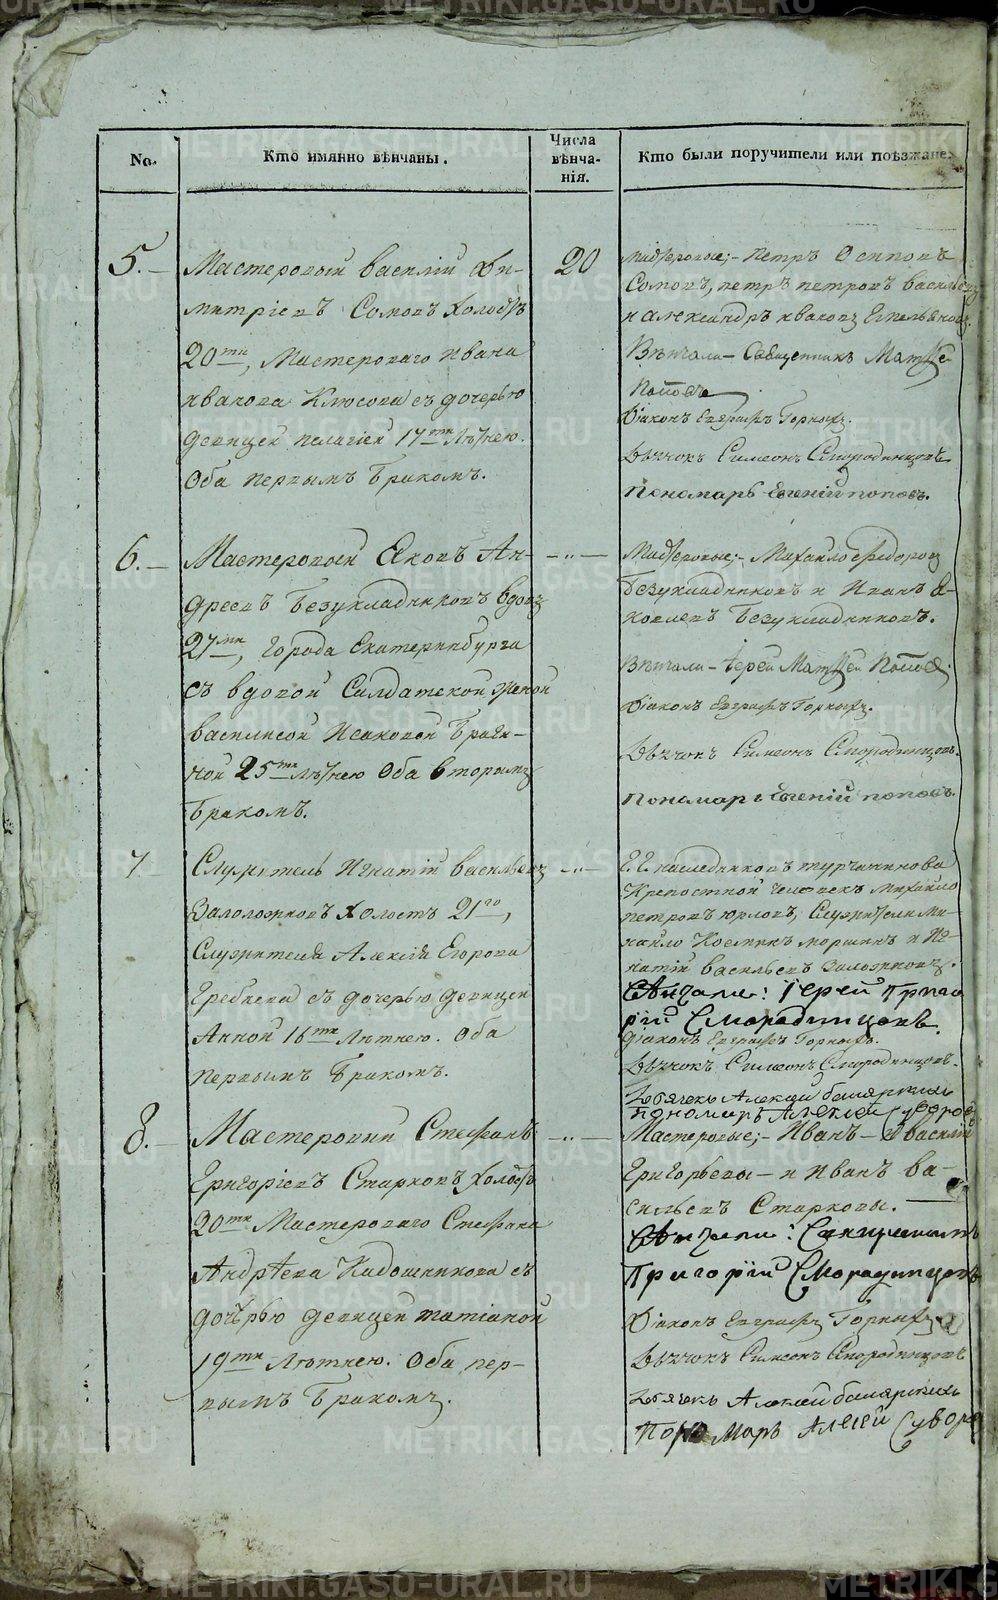 No.
Кто имянно вѣнчаны.
Числа
вѣнча-
нія.
Кто были поручители или поѣзжане.
5.
Мастеровый Василій Ди-
митріевъ Сомовъ холостъ
20ти, Мастероваго Ивана
Клюсова съ дочерью
девицей Пелагіей 17ти лѣтнею.
Оба первымъ бракомъ.
20
Мастеровые;- Петръ Осиповъ
Сомовъ, Петръ Петровъ
и Александръ
Вѣнчали - Священникъ Матфей
Поповъ
Діаконъ Евграфъ Горныхъ.
Дьячокъ Симеонъ Смородинцовъ
Пономарь Евгеній Поповъ.
6.
Мастеровый Яковъ Ан-
дреевъ Безукладниковъ вдовъ
27ми, Города Екатеринбурга
съ вдовой Салдатской женой
Василисой Исаковой Браги-
ной 25ти лѣтнею Оба вторымъ
бракомъ.
-"-
Мастеровые;- Михайло Федоровъ
Безукладниковъ и Иванъ Я-
ковлевъ Безукладниковъ.
Вѣнчали - Іерей Матфей Поповъ.
Діаконъ Евграфъ Горныхъ.
Дьячокъ Симеонъ Смородинцовъ.
Пономарь Евгеній Поповъ.
7
Служитель Игнатій Васильевъ
Заложновъ холостъ 21го,
Служителя Алексія Егорова
Гребнева съ дочерью девицей
Анной 16ти Лѣтнею. Оба
первымъ бракомъ.
-"-
Г.Г. наследниковъ Турчанинова
Крепостной человекъ Михайло
Петровъ Юрловъ, Служители Ми-
хайло Косминъ Моршинъ и Иг-
натій Васильевъ Заложновъ.
Вѣнчали: Іерей Григо
рій Смородинцовъ.
Діаконъ Евграфъ Горныхъ.
Дьячокъ Симеонъ Смородинцовъ.
Дьячекъ Алексей
Пономаръ Алексей Суворовъ
8.
Мастеровый Стефанъ
Григоріевъ Старковъ холостъ
20ти Мастероваго Стефана
Андрѣева Кадошникова съ
дочерью девицей Татіаной
19ти Лѣтнею. Оба пер-
вымъ бракомъ.
-"-
Мастеровые;- Иванъ - и Василій
Григорьевы - и Иванъ Ва-
сильевъ Старковы.
Вѣнчали: Священникъ
Григорій Смородинцовъ
Діаконъ Евграфъ Горныхъ
Дьячокъ Симеонъ Смородинцовъ
Дьячекъ Алексей
Пономаръ Алексей Суворовъ
METRIKI.GASO-URAL.RU